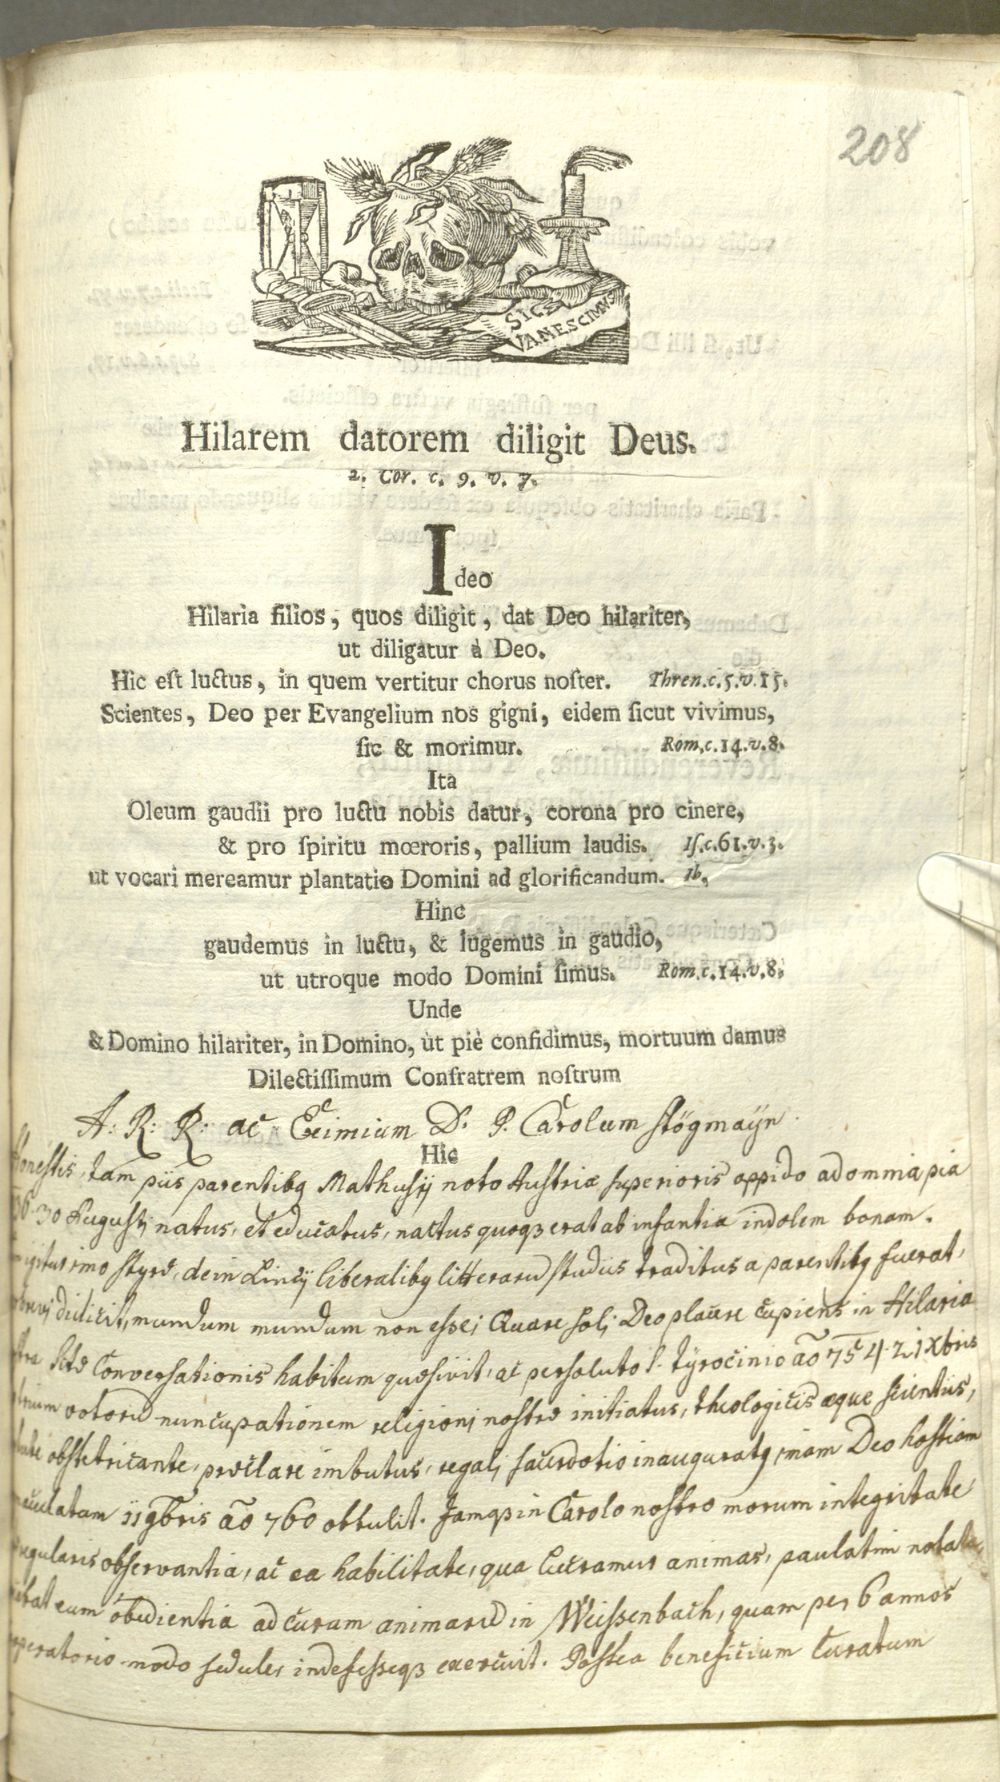 208
SIC
VANESCIMUS
Hilarem datorem diligit Deus.
2. Cor. c. 9. v. 7.
Ideo
Hilaria filios, quos diligit, dat Deo hilariter,
ut diligatur à Deo.
Hic est luctus, in quem vertitur chorus noster. Thren. c. 5. v. 15.
Scientes, Deo per Evangelium nos gigni, eidem sicut vivimus,
sic & morimur. Rom, c. 14. v. 8.
Ita
Oleum gaudii pro luctu nobis datur, corona pro cinere,
& pro spiritu mœroris, pallium laudis. Is. c. 61. v. 3.
ut vocari mereamur plantatio Domini ad glorificandum. Ib,
Hinc
gaudemus in luctu, & lugemus in gaudio,
ut utroque modo Domini simus. Rom. c. 14. v. 8,
Unde
& Domino hilariter, in Domino, ùt piè confidimus, mortuum damus
Dilectissimum Confratrem nostrum
A: R: R: ac Eximium D. P. Carolum Stögmayr
Hic
Honestis, tam piis parentibq Mathusij noto Austriæ superioris oppido ad omnia pia
36. 30 Augusti natus, et educatus, nactus quoqz erat ab infantia indolem bonam.
igitur imo Styræ, dein Lincij liberalibq litterarũ studiis traditus a parentibq fuerat,
didicit, mundum mundum non esse; Quare soli Deo placere cupiens in Hilaria
Stæ Conversationis habitum quæsivit, ac persoluto tyrocinio aõ 754. 21 Xbris
votorũ nuncupationem religioni nostræ initiatus, theologicis æque scientiis,
obstetricante, præclare imbutus, regali sacerdotio inauguratq, Deo hostiam
11 9bris aõ 760 obtulit. Jamqz in Carolo nostro morum integritate
regularis observantia, ac ea habilitate, qua lucramur animas, paulatim
eum obedientia ad curam animarũ in Weissenbach, quam per 6 annos
modo sedulus indefesseqz exercuit. Postea beneficium Curatum